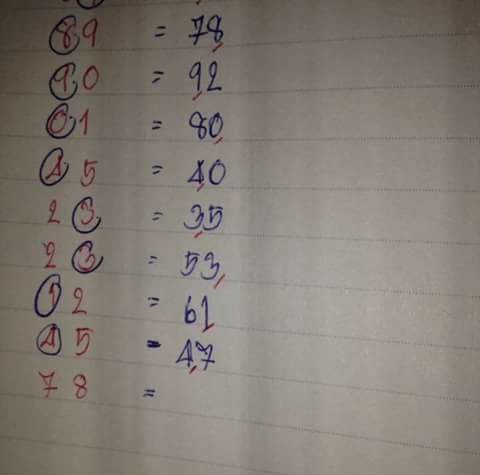 89 = 78
90 = 92
01 = 80
45 = 40
23 = 35
23 = 53
12 = 61
45 = 47
78 =